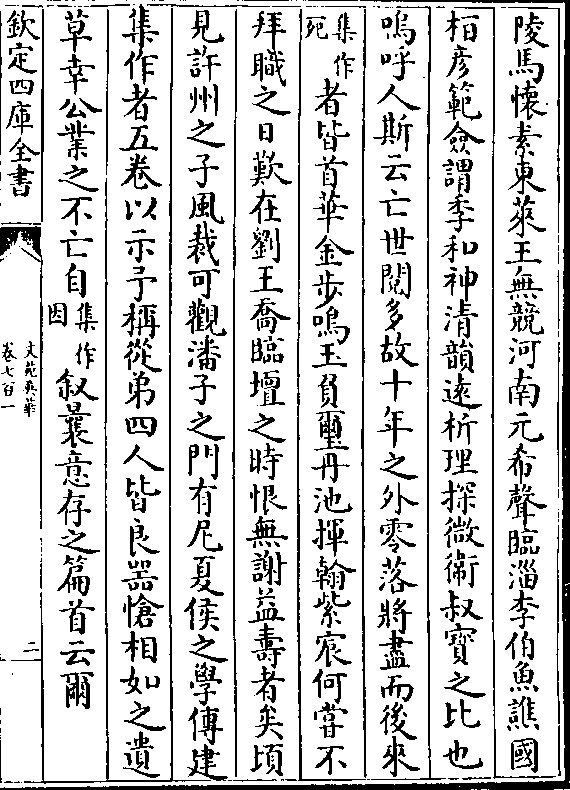 陵馬懷素東萊王無競河南元希聲臨淄李伯魚譙國
桓彦範僉謂季和神清韻遠析理探微衛叔寳之比也
嗚呼人斯云亡世閱多故十年之外零落將盡而後來
集作死者皆首華金步鳴玉負璽丹池揮翰紫宸何嘗不
拜職之日歎在劉王喬臨壇之時恨無謝益壽者矣頃
見許州之子風裁可觀潘子之門有尼夏侯之學傳建
集作者五卷以示予稱從弟四人皆良器愴相如之遺
草幸公業之不亡自集作因叙曩意存之篇首云爾
欽定四庫全書
文苑英華
卷七百一
二